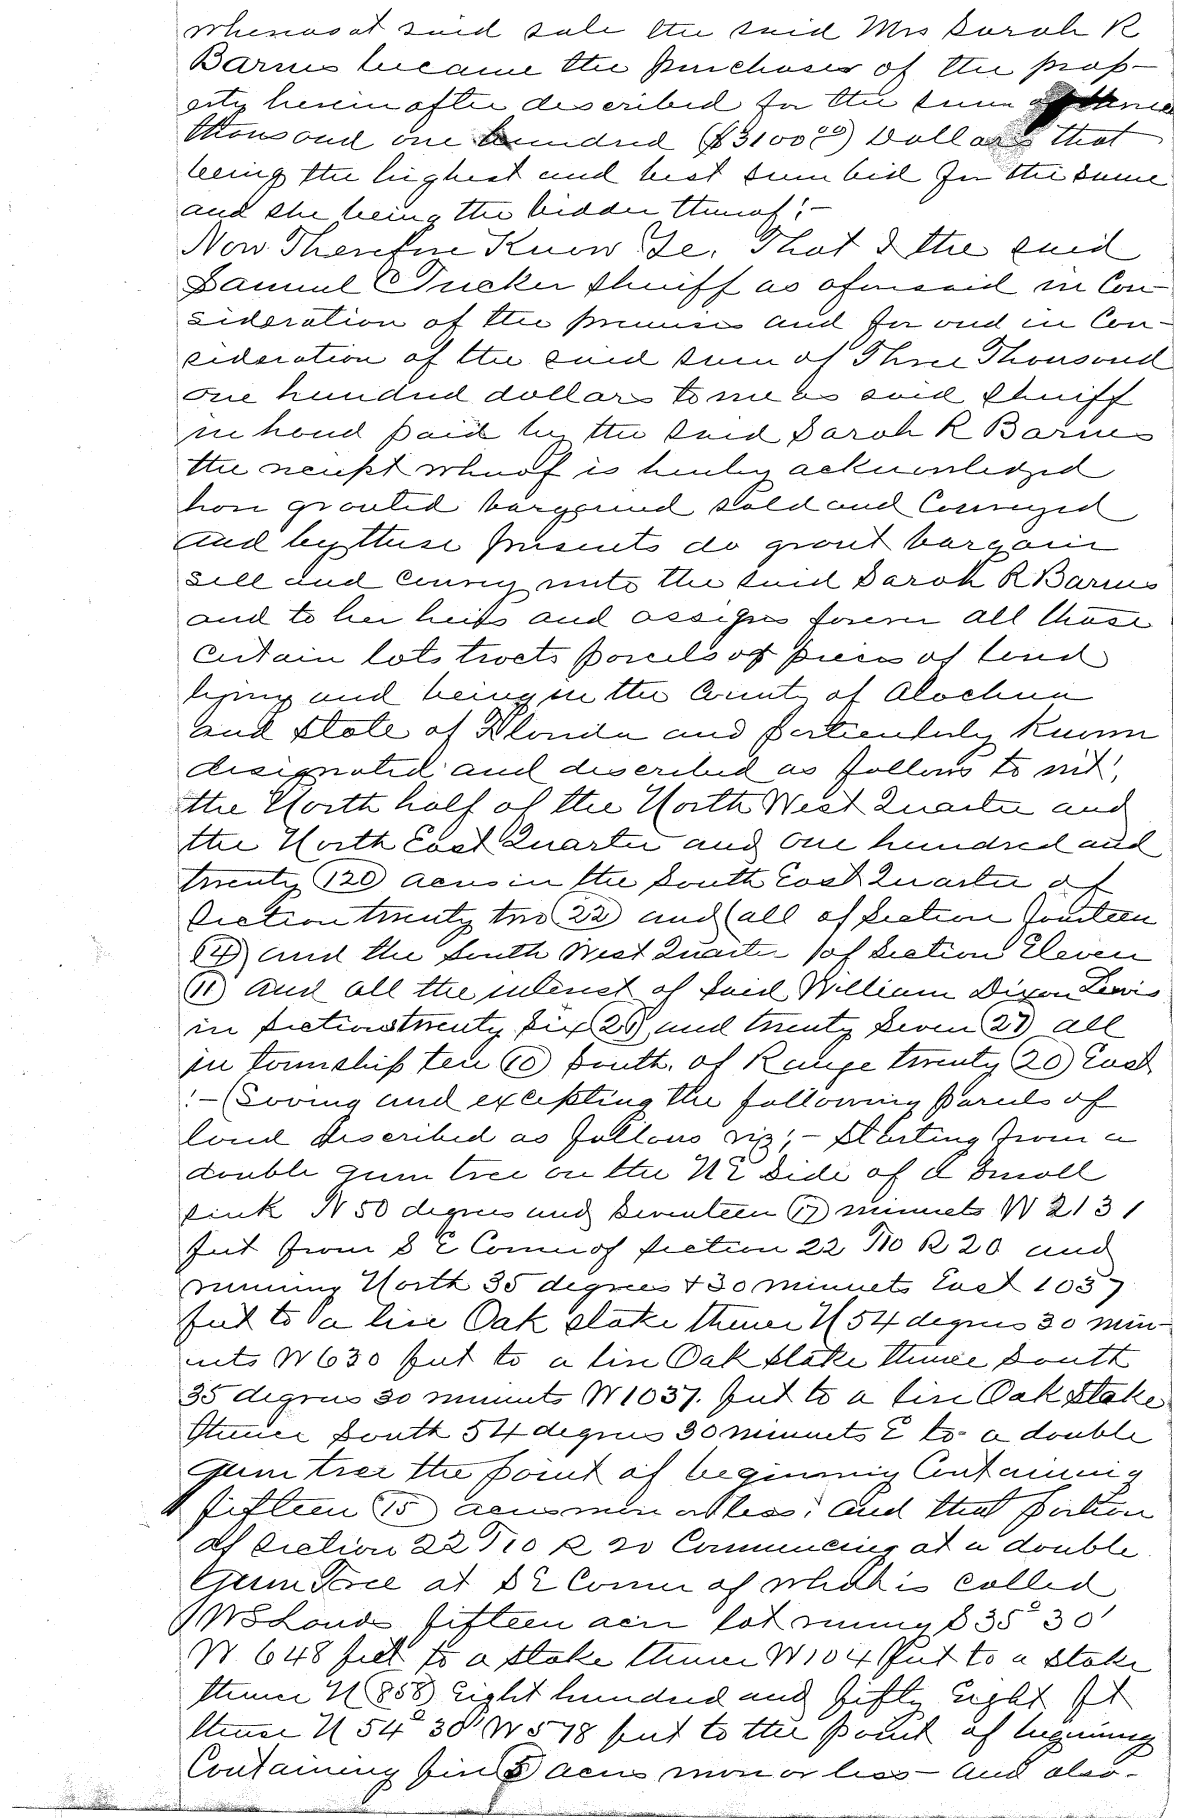 whereas at said sale the said Mrs Sarah R
Barnes became the purchaser of the prop-
erty herein after described for the sum of three
thousand one hundred ($3100.00) Dollars that
being the highest and best sum bid for the same
and she being the bidder thereof;-
Now Therefore Know Ye. That I the said
Samuel C Tucker Sheriff as aforesaid in Con-
sideration of the premises and for and in Con-
sideration of the said sum of Three Thousand
one hundred dollars to me as said Sheriff
in hand paid by the said Sarah R Barnes
the receipt whereof is hereby acknowledged
have granted bargained sold and Conveyed
and by these presents do grant bargain
sell and convey unto the said Sarah R Barnes
and to her heirs and assigns forever all those
certain lots tracts parcels of pieces of land
lying and being in the County of Alachua
and State of Florida and particularly known
designated and described as follows to wit;
the North half of the North West Quarter and
the North East Quarter and one hundred and
twenty (120) acres in the South East Quarter of
Section twenty two (22) and (all of Section fourteen
(14) and the South West Quarter of Section Eleven
(11) and all the interest of said William Dixon Lewis
in sections twenty six (26) and twenty seven (27) all
in township ten (10) South. of Range twenty (20) East
:- (Saving and excepting the following parcels of
land described as follows viz;- Starting from a
double gum tree on the N E side of a small
sink N 50 degrees and seventeen (17) minuets W 2131
feet from S E Corner of section 22 T10 R 20 and
running North 35 degrees + 30 minuets East 1037
feet to a live Oak stake thence N 54 degrees 30 min-
uets W 630 feet to a live Oak stake thence South
35 degrees 30 minuets W 1037. feet to a live Oak stake
thence South 54 degrees 30 minuets E to a double
gum tree the point of beginning Containing
fifteen (15) acres more or less; and that portion
of section 22 T10 R 20 Commencing at a double
Gum Tree at S E Corner of what is called
W S Lands fifteen acre lot runing S 35° 30'
W. 648 feet to a stake thence W 104 feet to a stake
thence N (858) Eight hundred and fifty Eight ft
thence N 54° 30' W 578 feet to the point of begining
Containing five (5) acres more or less - and also-